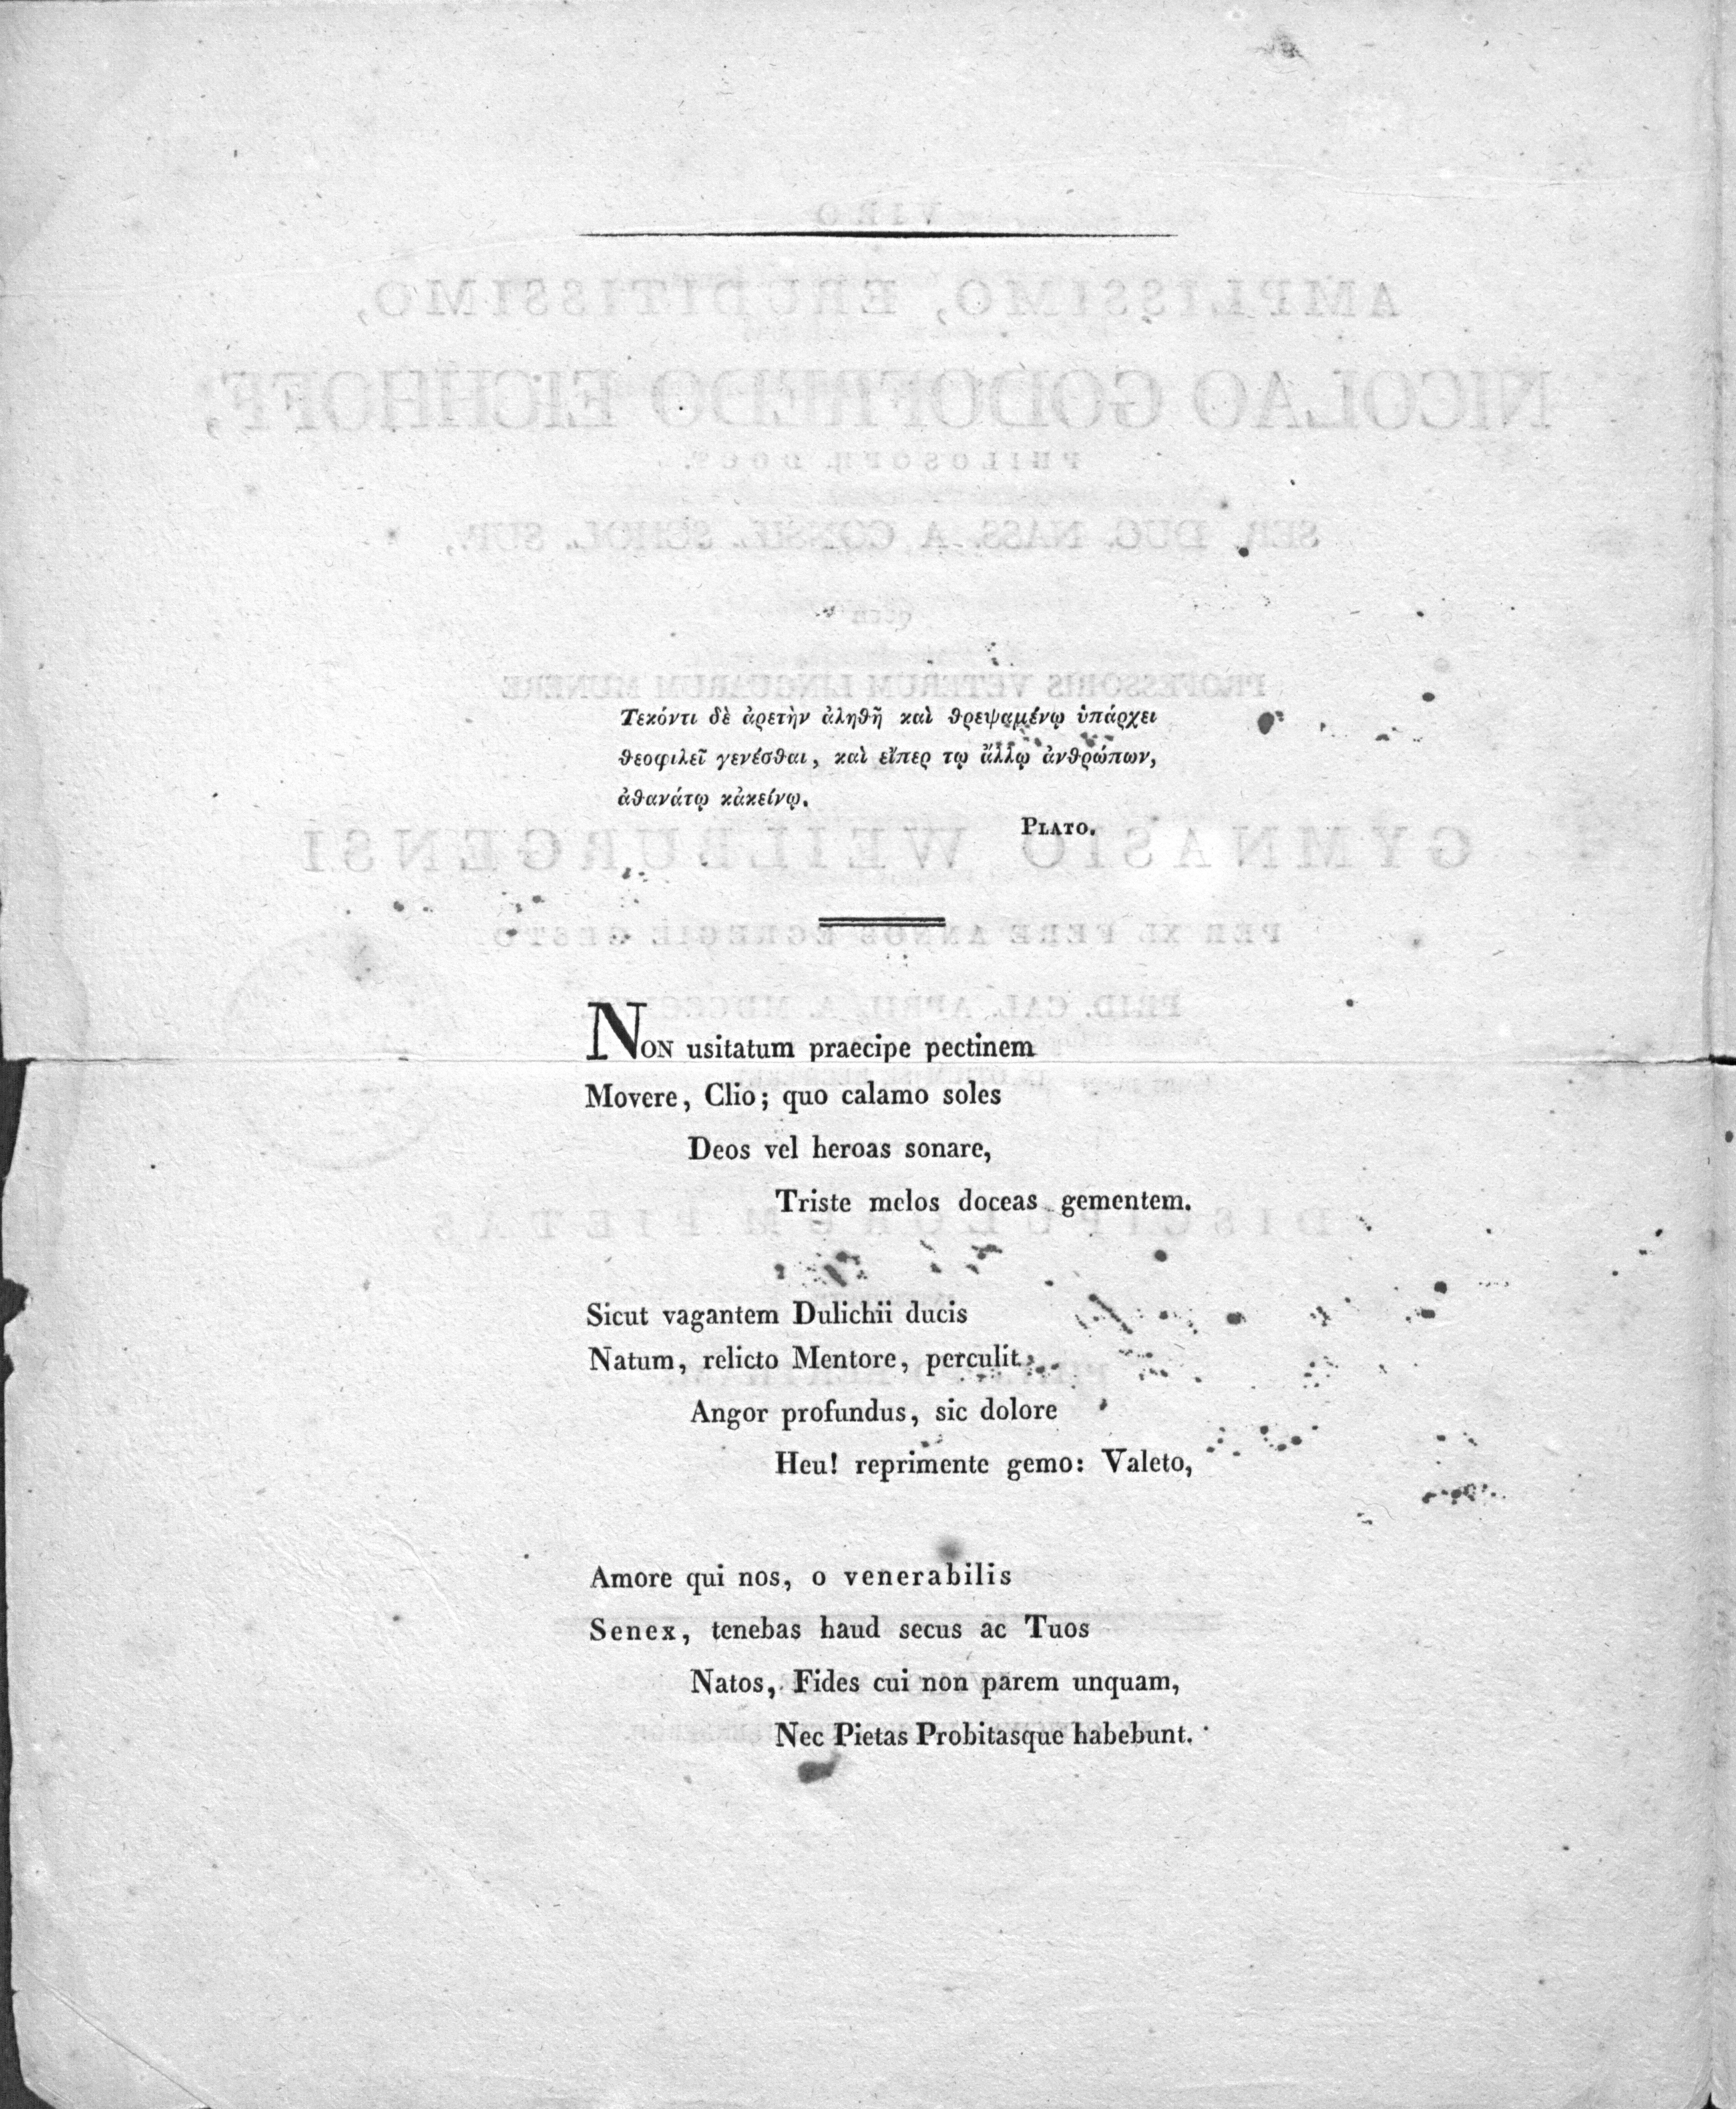 Τεκόντι δὲ ἀρετὴν ἀληθῆ καὶ θρεψαμένῳ ὑπάρχει
θεοφιλεῖ γενέσθαι, καὶ εἴπερ τῳ ἄλλῳ ἀνθρώπων,
ἀθανάτῳ κἀκείνῳ.
PLATO.
NON usitatum praecipe pectinem
Movere, Clio; quo calamo soles
Deos vel heroas sonare,
Triste melos doceas gementem.
Sicut vagantem Dulichii ducis
Natum, relicto Mentore, perculit
Angor profundus, sic dolore
Heu! reprimente gemo: Valeto,
Amore qui nos, o venerabilis
Senex, tenebas haud secus ac Tuos
Natos, Fides cui non parem unquam,
Nec Pietas Probitasque habebunt.